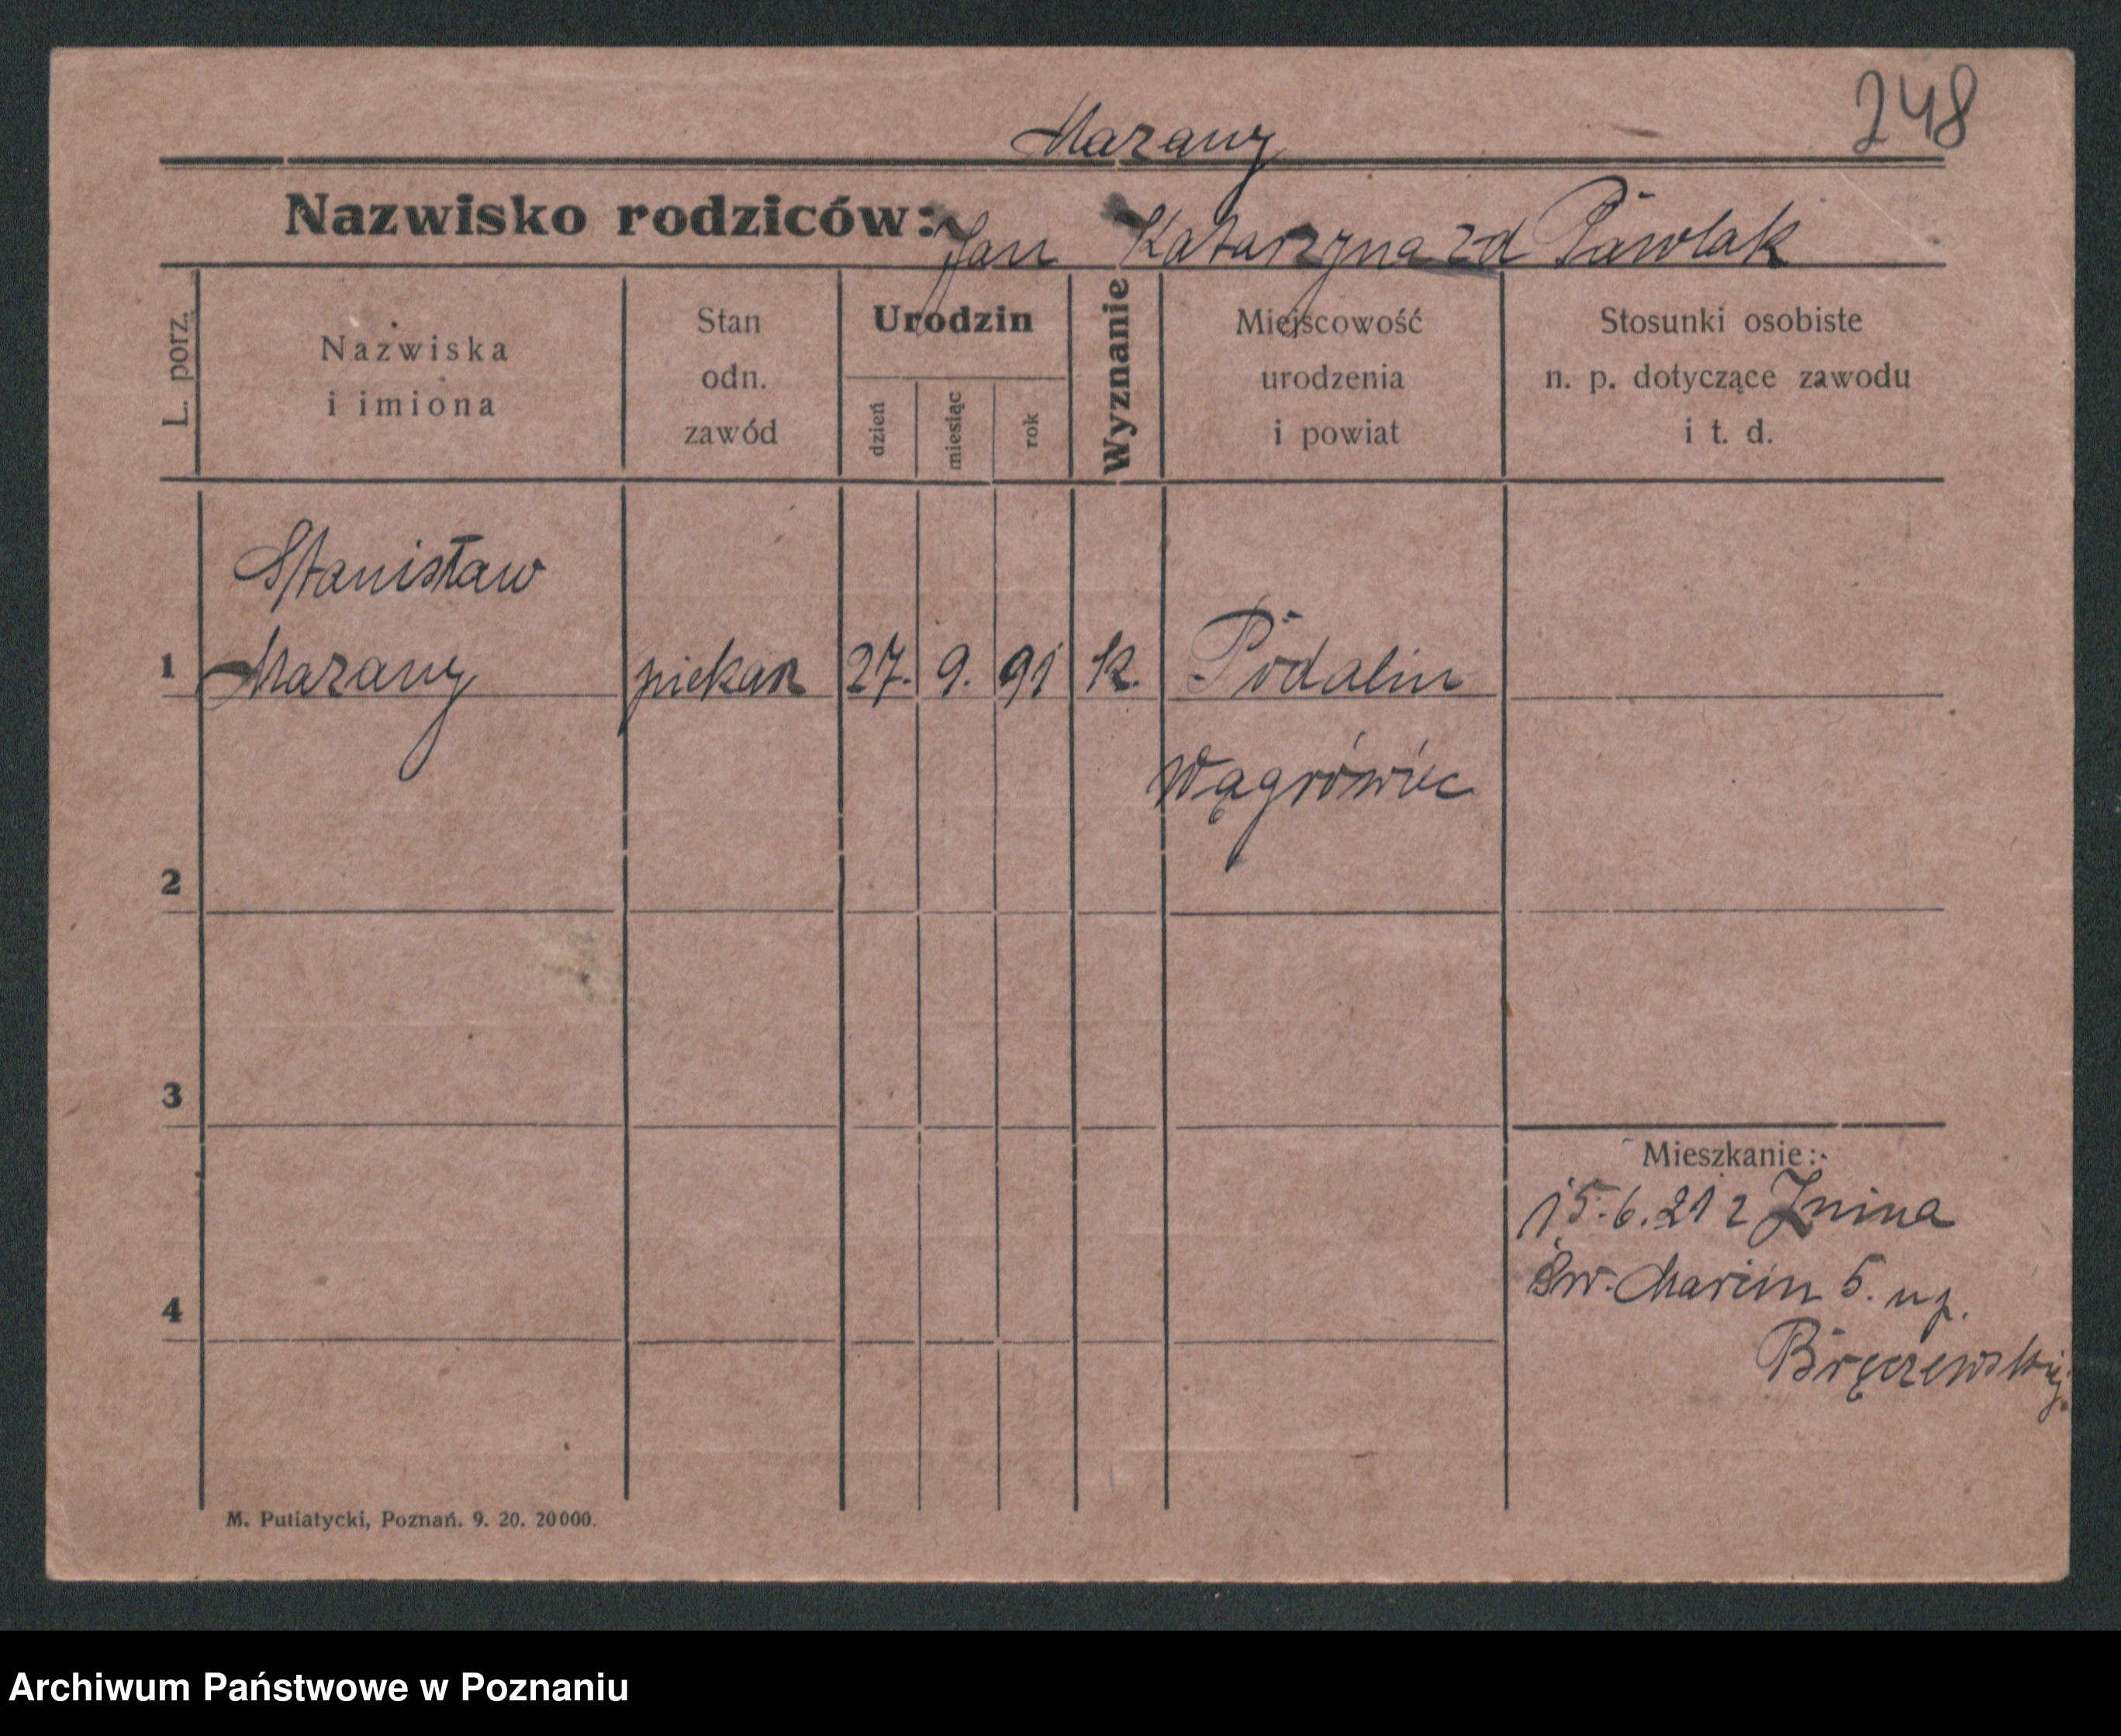 248
Mazany
Nazwisko rodziców: Jan Katarzyna zd Pawlak
L. porz.
Nazwiska
i imiona
Stan
odn.
zawód
Urodzin
dzień
miesiąc
rok
Wyznanie
Miejscowość
urodzenia
i powiat
Stosunki osobiste
n. p. dotyczące zawodu
i t. d.
Stanisław
1 Mazany piekarz 27. 9. 91 k. Podalin
Wągrówiec
2
3
Mieszkanie:
15.6.21 z Żnina
Św. Marcin 5. u p.
4
Bręczewskiej.
M. Putiatycki, Poznań. 9. 20. 20000.
Archiwum Państwowe w Poznaniu